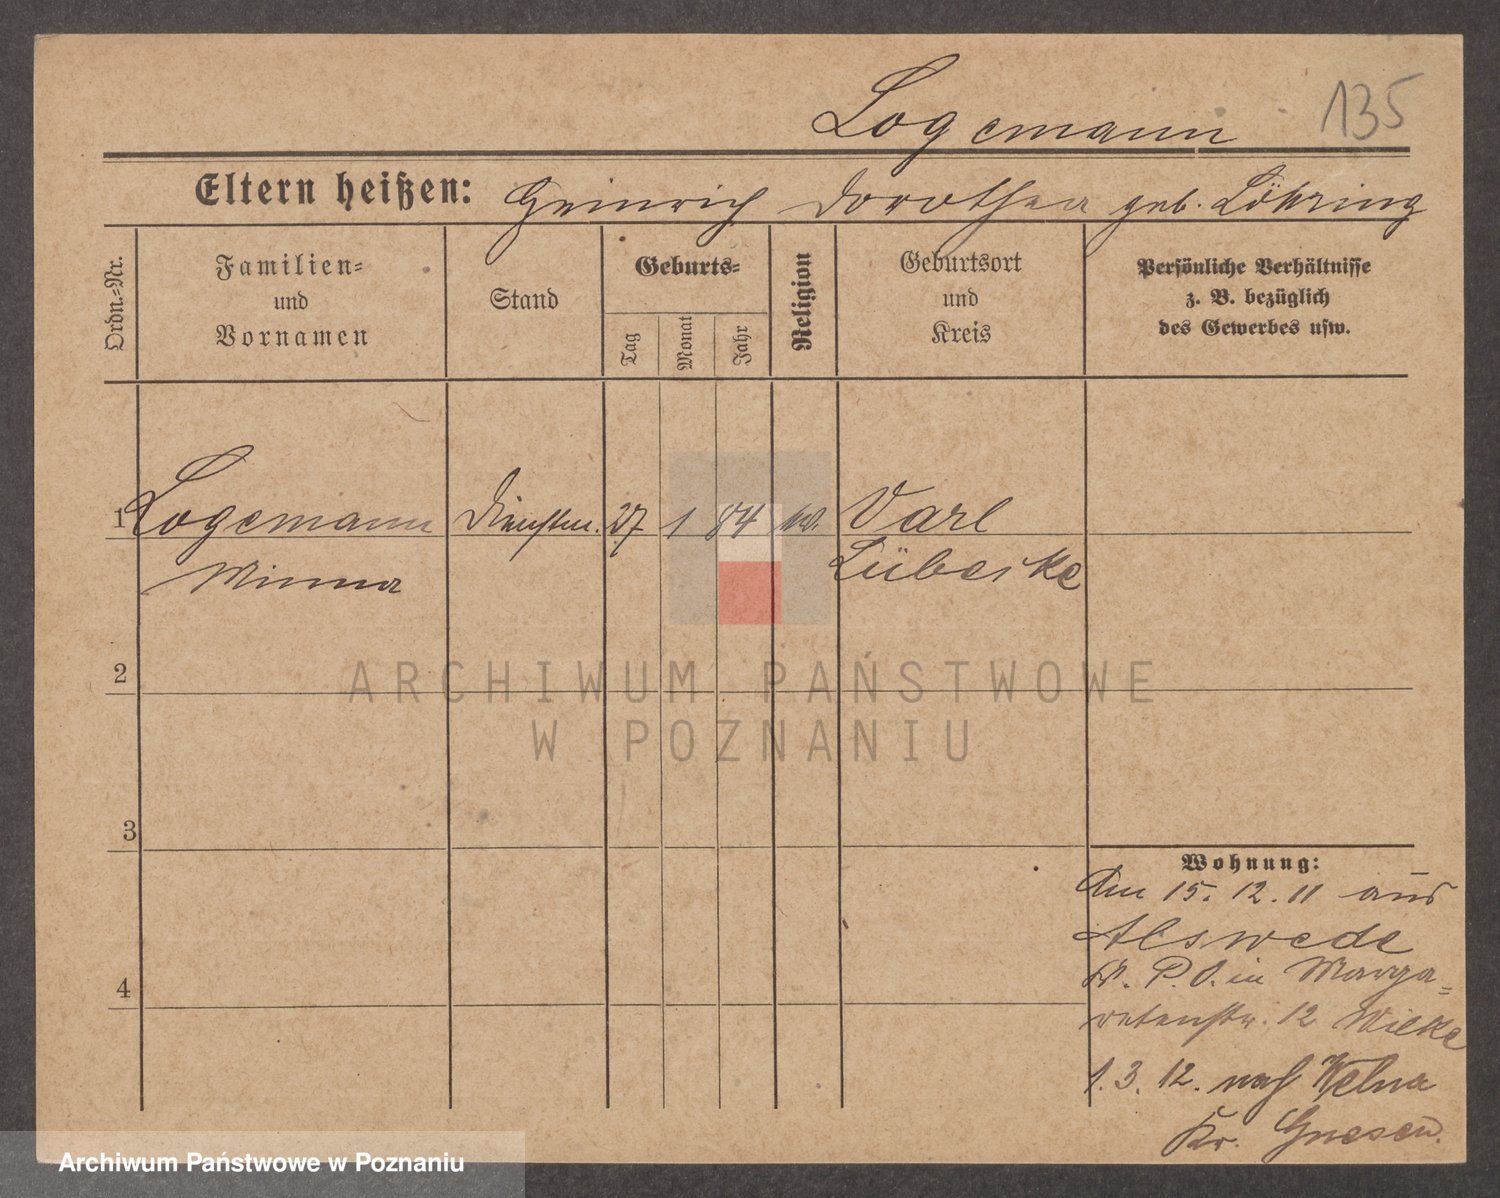 Logemann 135
Eltern heißen: Heinrich Dorothea geb. Löhring
Ordn.-Nr.
Familien-
und
Vornamen
Stand
Geburts-
Tag
Monat
Jahr
Religion
Geburtsort
und
Kreis
Persönliche Verhältnisse
z. B. bezüglich
des Gewerbes usw.
1 Logemann Dienstm. 27 1 84 Varl
Minna Lübecke
2
3
4
Wohnung:
Am 15. 12. 11 aus
Alswede
P. O. in Marga-
retenstr. 12 Wilke
1. 3. 12. nach Welna
Kr. Gnesen.
ARCHIWUM PAŃSTWOWE
W POZNANIU
Archiwum Państwowe w Poznaniu